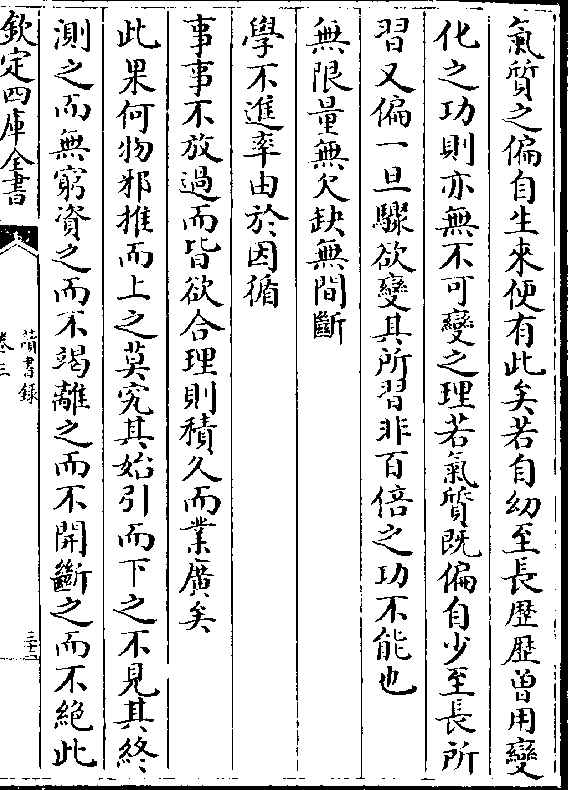 氣質之偏自生來便有此矣若自幼至長歴歴曽用變
化之功則亦無不可變之理若氣質既偏自少至長所
習又偏一旦驟欲變其所習非百倍之功不能也
無限量無欠缺無間斷
學不進率由於因循
事事不放過而皆欲合理則積久而業廣矣
此果何物邪推而上之莫究其始引而下之不見其終
測之而無窮資之而不竭離之而不開斷之而不絶此
欽定四庫全書
讀書録
卷三
三十二